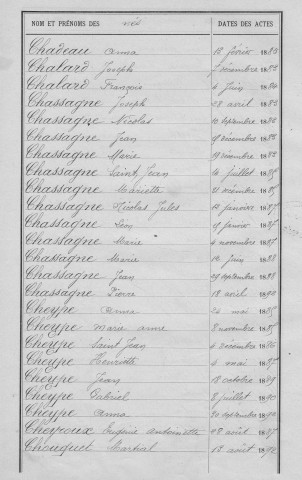 NOM ET PRÉNOMS DES nés DATES DES ACTES
Chadeau Anna 12 février 1883
Chalard Joseph décembre 1882
Chalard François 4 Juin 1884
Chassagne Joseph 28 avril 188
Chassagne Nicolas 10 septembre 188
Chassagne Jean décembre 188
Chassagne Marie 29 décembre 188
Chassagne Saint Jean juillet 188
Chassagne Mariette décembre 188
Chassagne Nicolas Jules 12 janvier 1887
Chassagne Léon janvier 1887
Chassagne Marie 4 novembre 1887
Chassagne Marie 12 Juin 1888
Chassagne Jean 29 septembre 1888
Chassagne Pierre 18 avril 1890
Cheype Anna 20 mai 188
Cheype Marie Anne 8 novembre 188
Cheype Saint Jean 4 décembre 1886
Cheype Henriette 4 mai 1887
Cheype Jean 18 octobre 1889
Cheype Gabriel 8 juillet 1890
Cheype Anna 30 septembre 1892
Cheyroux Eugénie Antoinette 28 août 1887
Chouquet Martial 12 août 1892